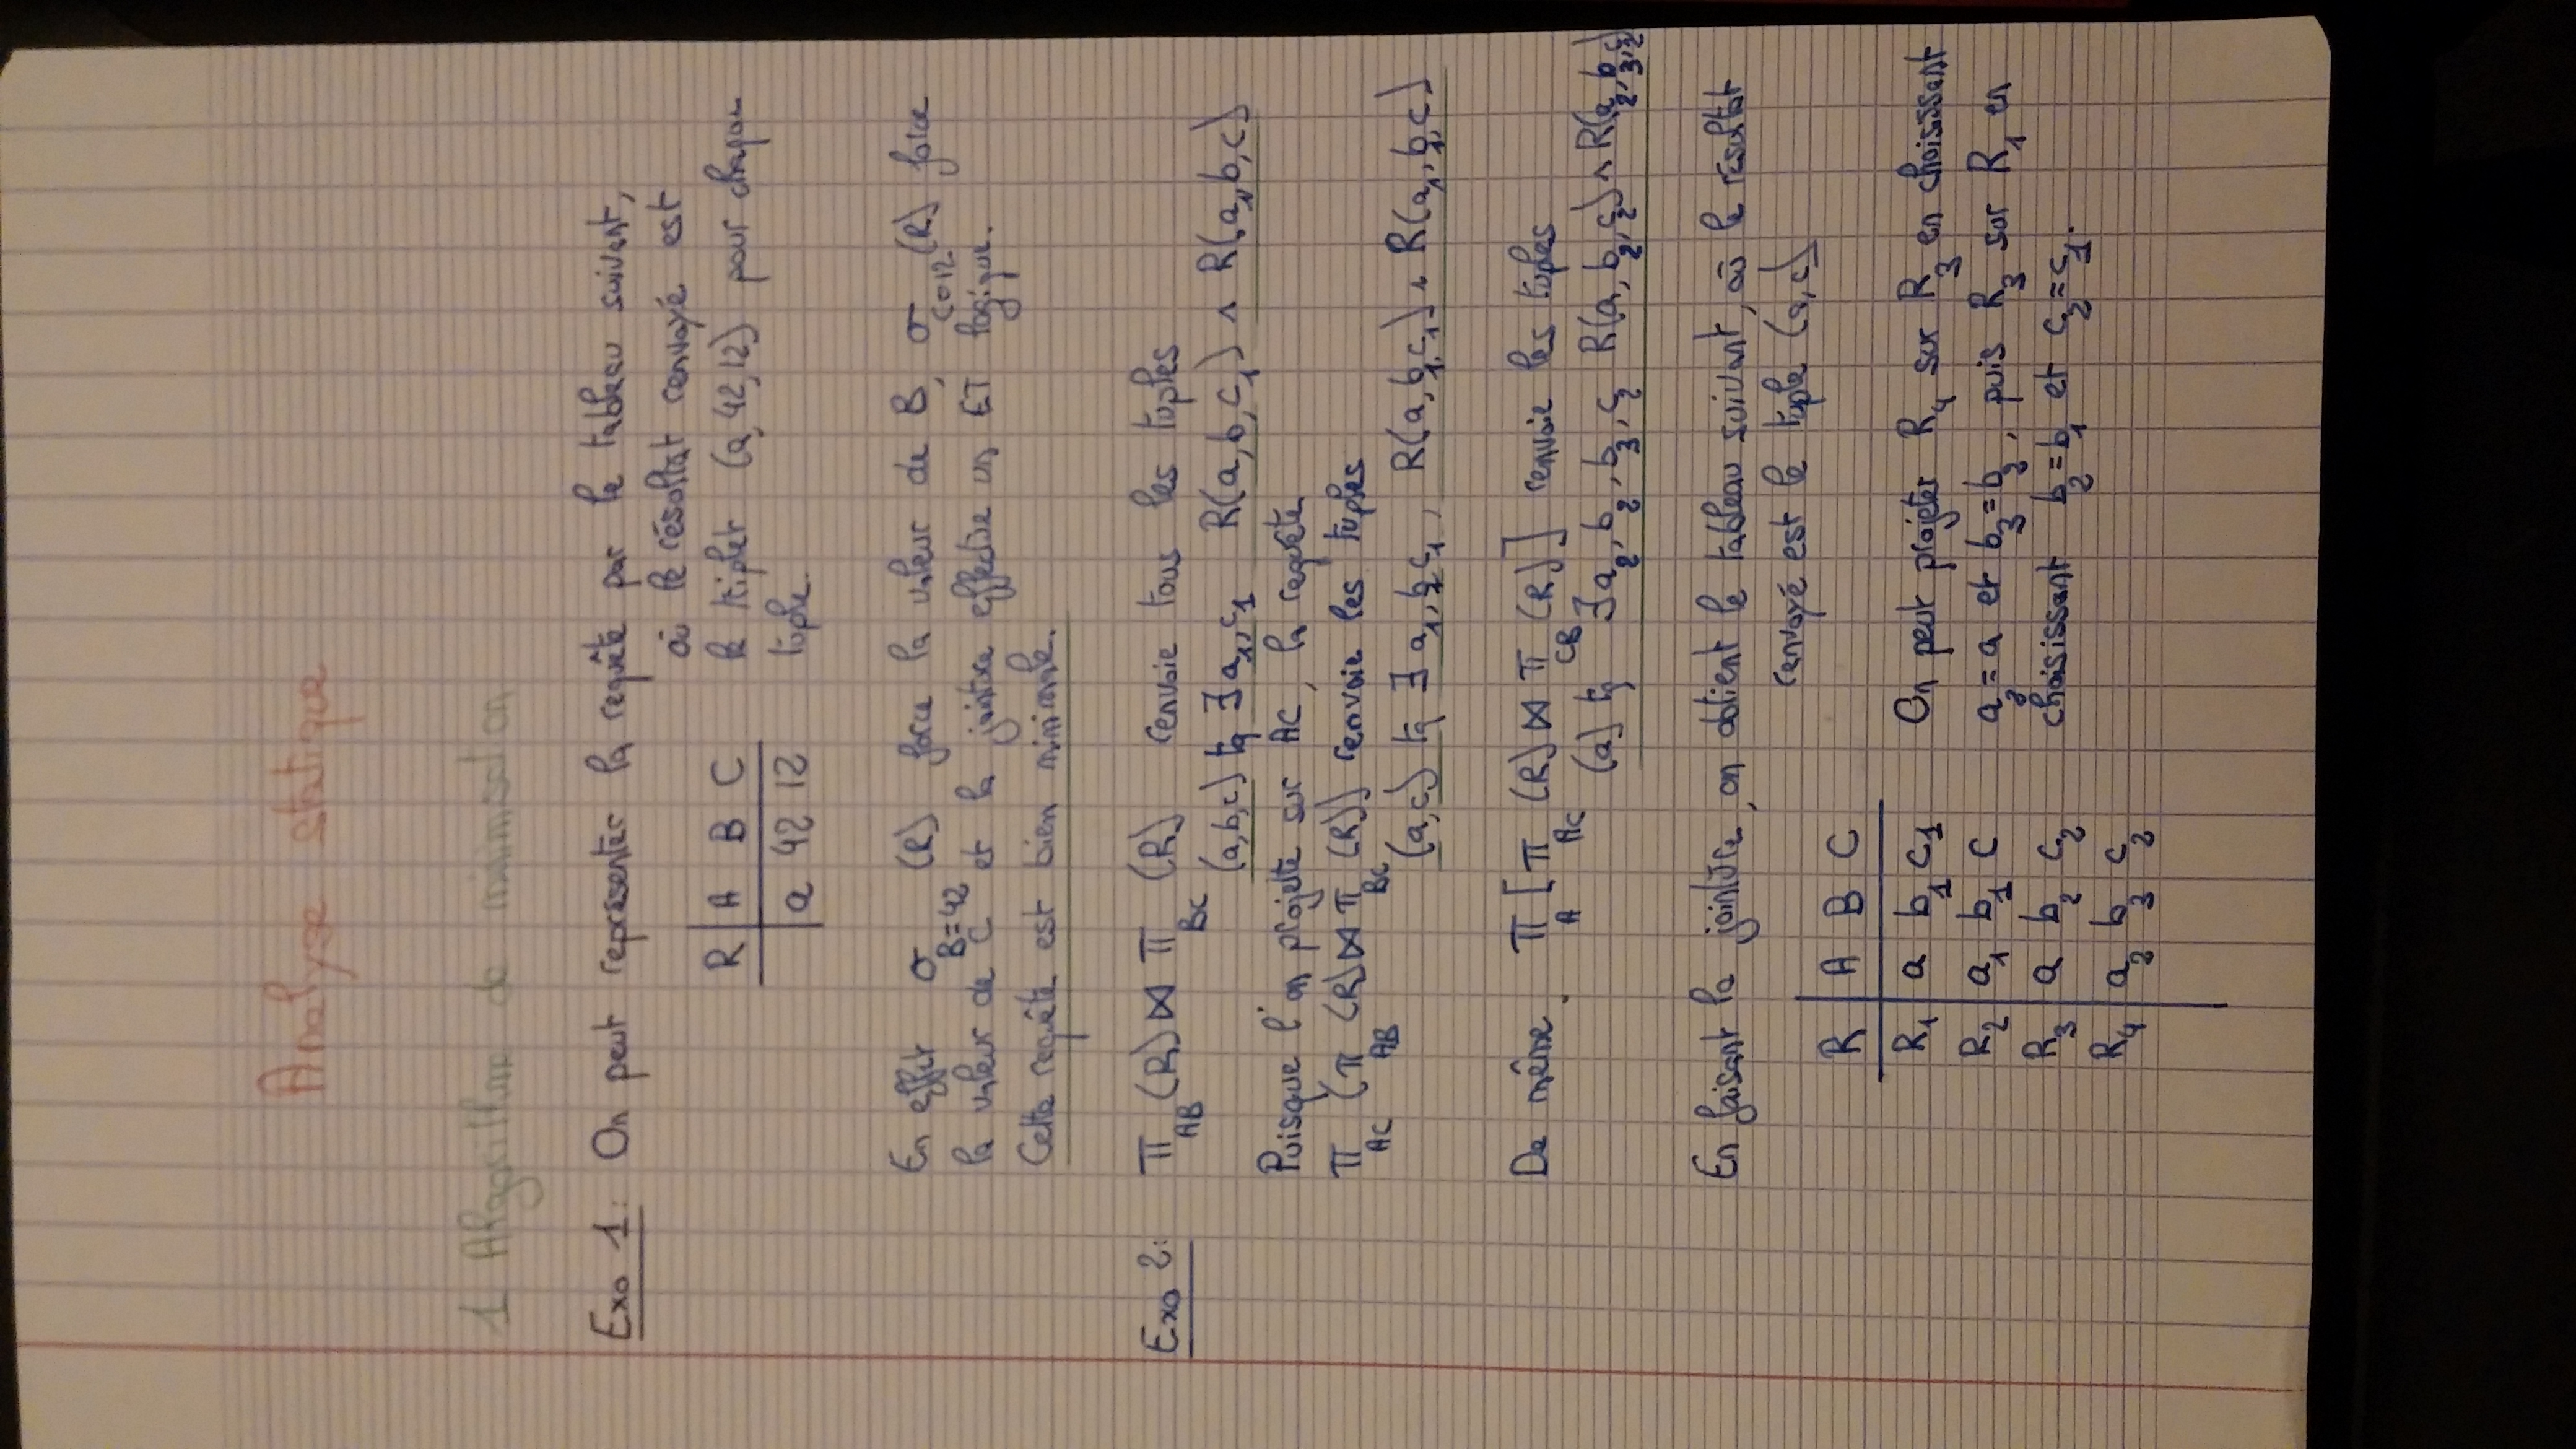 Analyse statique
1 Algorithme de minimisation
Exo 1: On peut représenter la requête par le tableau suivant,
où le résultat renvoyé est
R | A B C le triplet (a, 42, 12) pour chaque
a 42 12 tuple.
En effet σ_{B=42} (R) force la valeur de B, σ_{C=12} (R) force
la valeur de C et la jointure effectue un ET logique.
Cette requête est bien minimale.
Exo 2: π_{AB} (R) ⋈ π_{BC} (R) renvoie tous les tuples
(a,b,c) tq ∃ a₁,c₁ R(a,b,c₁) ∧ R(a₁,b,c)
Puisque l'on projette sur AC, la requête
π_{AC} (π_{AB} (R) ⋈ π_{BC} (R)) renvoie les tuples
(a,c) tq ∃ a₁,b₁,c₁, R(a,b₁,c₁) ∧ R(a₁,b₁,c)
De même, π_A [π_{AC} (R) ⋈ π_{CB} (R)] renvoie les tuples
(a) tq ∃ a₂, b₂, b₃, c₂ R(a, b₂, c₂) ∧ R(a₂, b₃, c₂)
En faisant la jointure, on obtient le tableau suivant, où le résultat
renvoyé est le tuple (a,c)
R | A B C
R₁ | a b₁ c₁ On peut projeter R₄ sur R₃ en choisissant
R₂ | a₁ b₁ c a₂ = a et b₃ = b₂, puis R₃ sur R₁ en
R₃ | a b₂ c₂ choisissant b₂ = b₁ et c₂ = c₁.
R₄ | a₂ b₃ c₂